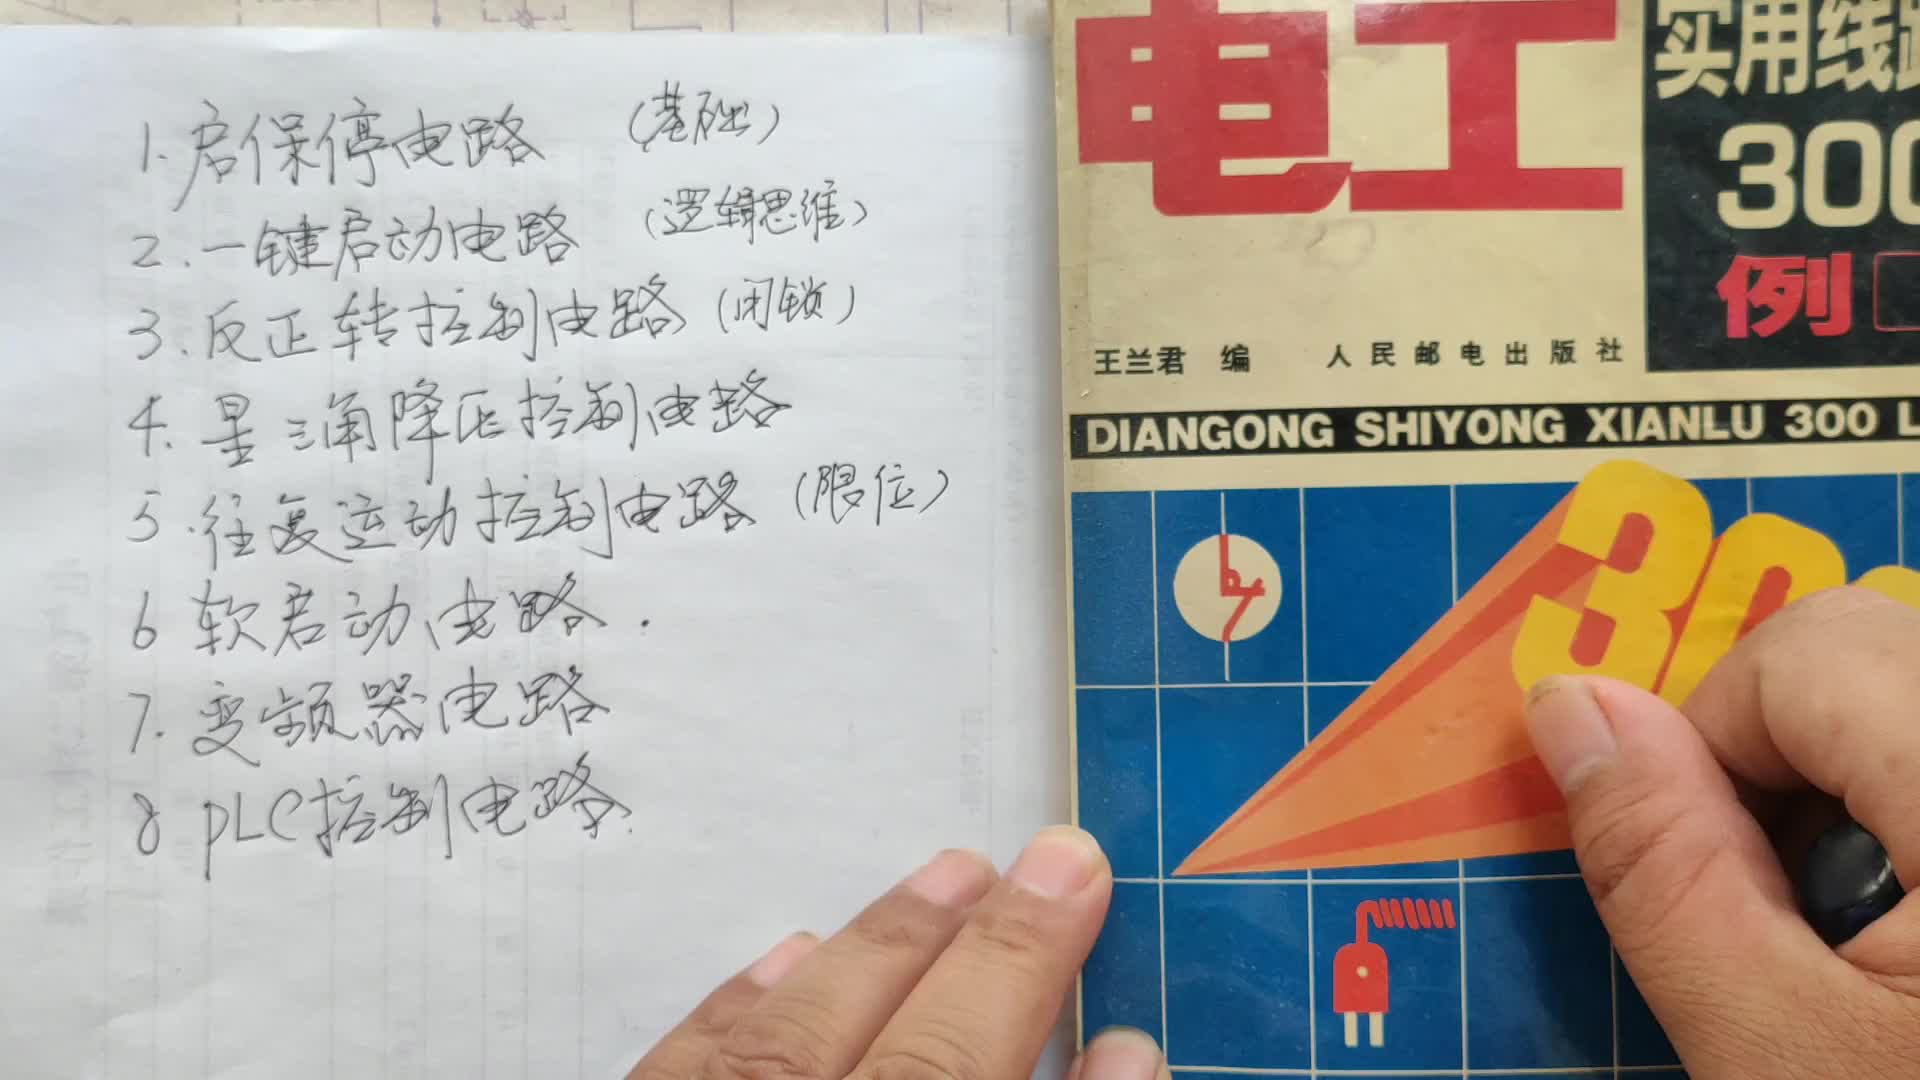 1. 启保停电路 (基础)
2. 一键启动电路 (逻辑思维)
3. 反正转控制电路 (闭锁)
4. 星三角降压控制电路
5. 往复运动控制电路 (限位)
6 软启动电路.
7. 变频器电路
8 PLC控制电路.
电工
实用线路
300
例
王兰君 编 人民邮电出版社
DIANGONG SHIYONG XIANLU 300 L
300